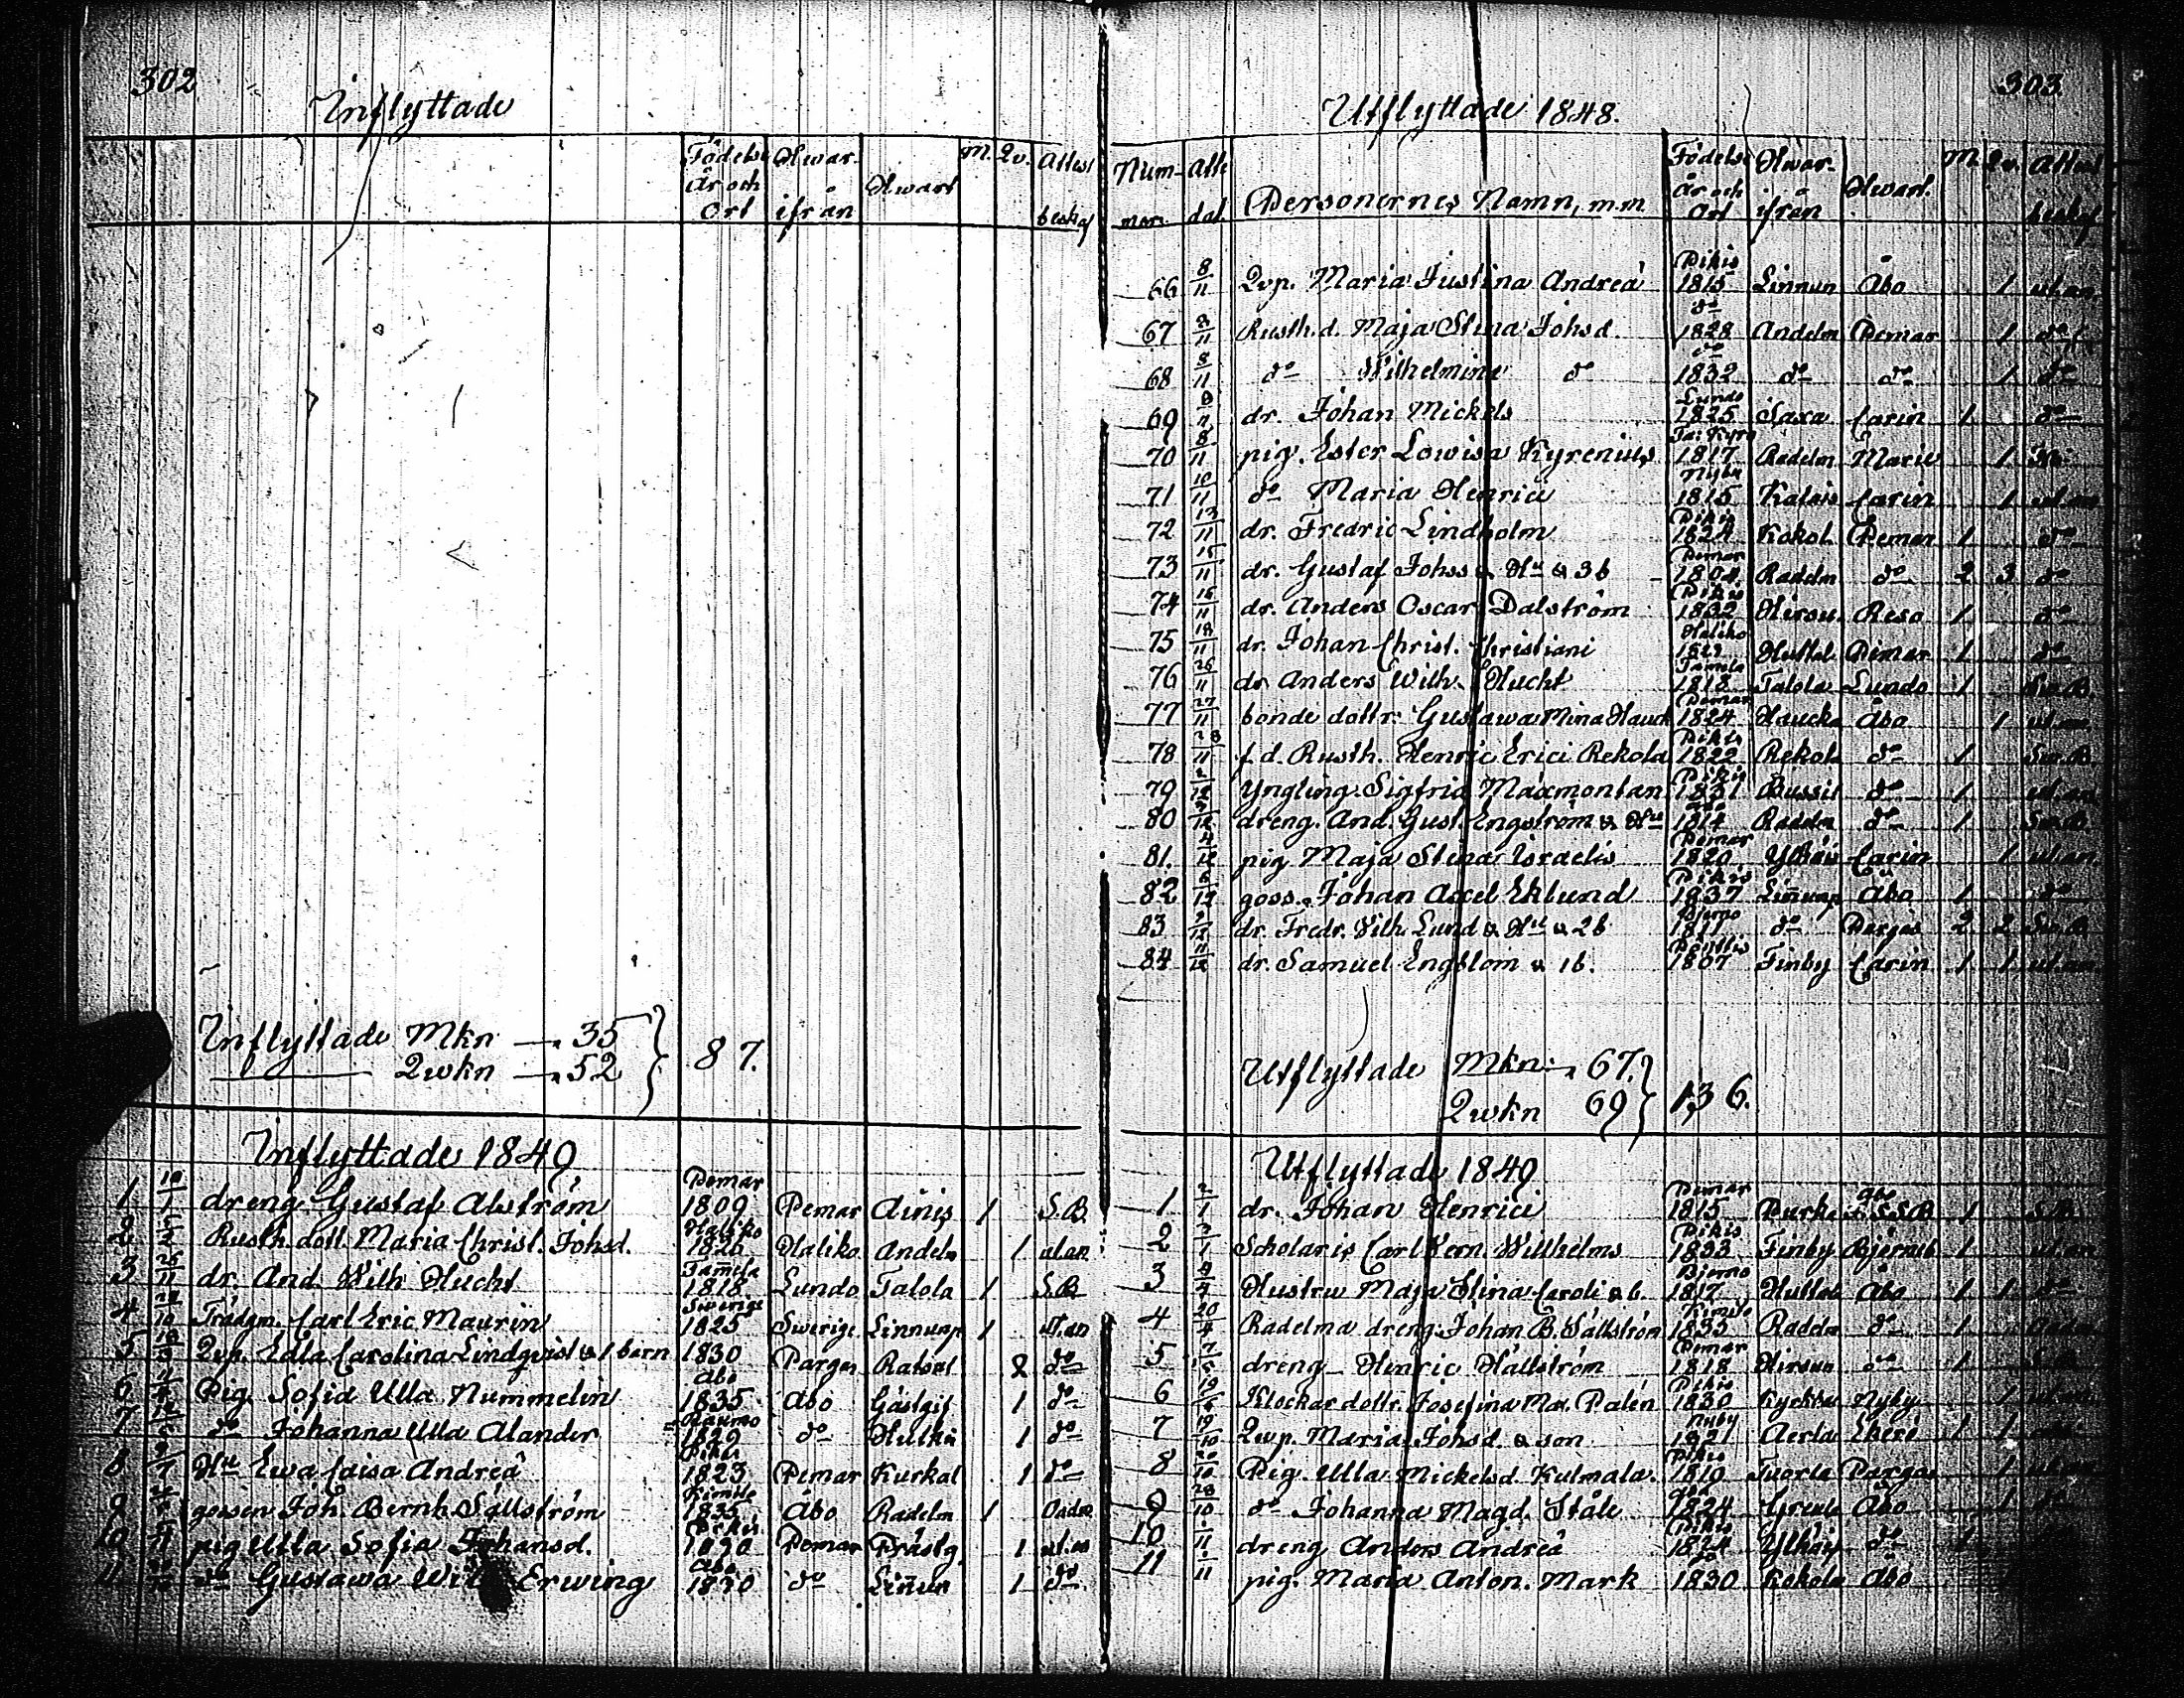 302
Inflyttade
Födelse År och Ort Hwar-ifrån Hwart M. Qv. Attest beskaf
Inflyttade Mkn 35
Qwkn 52 } 87.
Inflyttade 1849
1 dreng Gustaf Alström Pemar 1809 Pemar Ainis 1 S.B.
2 Rusth. dott. Maria Christ. Johsd. Haliko 1826 Haliko Andeln 1 utan
3 25/11 dr. And. Wilh Hucht Tamela 1818 Lundo Talola 1 S.B
4 Trädgm. Carl Eric Maurin Swerige 1825 Swerige Linnunp 1 utan
5 Qvp. Edla Carolina Lindqvist & 1 barn 1830 Pargas 2 do
6 Pig. Sofia Ulla Nummelin Åbo 1835 Åbo Gästgif 1 do
7 do Johanna Ulla Alander Raumo 1829 do 1 do
8 Hu Ewa Caisa Andreä Pikis 1823 Pemar Kurkal 1 do
9 gossen Joh. Bernh. Sållström Kimito 1835 Åbo Radelm 1
10 pig Ulla Sofia Johansd. Pikis Pemar Prästg. 1 utan
11 do Gustawa Erwing Åbo 1830 do Linnun 1 do
303
Utflyttade 1848.
Num-mer Att. dat. Personernes Namn, m.m. Födelse År och Ort Hwar-ifrån Hwart. M. Qv. Attest beskaf
66 8/11 Qvp. Maria Justina Andreä Pikis 1815 Linnun Åbo 1 utan
67 8/11 Rusth.d. Maja Stina Johsd. do 1828 Andelm Pemar 1 do
68 8/11 do Wilhelmina do do 1832 do do 1 do
69 8/11 dr. Johan Mickels Lundo 1825 Saxa Carin 1 do
70 8/11 pig. Ester Lowisa Kyrenius 1817 Radelm Marie 1
71 10/11 do Maria Henrici Nyby 1815 Carin 1 utan
72 13/11 dr. Fredric Lindholm Pikis 1824 Kokol Pemar 1 do
73 15/11 dr. Gustaf Johss & Hu & 3 b Pemar 1804 Radelm do 2 3 do
74 15/11 dr. Anders Oscar Dalström Pikis 1832 Hirsu. Reso 1 do
75 18/11 dr. Johan Christ. Christiani Haliko Huttal. Pemar 1 do
76 25/11 dr Anders Wilh. Hucht Tamela 1818 Talola Lundo 1 Sw.B.
77 27/11 bonde dottr. Gustawa Mina Hauck Pemar 1824 Haucka Åbo 1 utan
78 28/11 f.d. Rusth. Henric Erici Rekola Pikis 1822 Rekol do 1 Sw.B
79 2/12 Yngling. Sigfrid Maxmontan Pikis 1831 Bussil do 1 utan
80 dreng. And. Gust. Engström & Hu Åbo 1814 Radelm do 1 Sw.B
81. pig Maja Stina Israelis Pemar 1820 Carin 1 utan
82 goss. Johan Axel Eklund Pikis 1837 Linnunp Åbo 1 do
83 dr. Fredr. Wilh. Lund & Hu & 2 b Bjerno 1811 do Pargas 2 2 Sw.B
84 11/12 dr. Samuel Engblom & 1 b. 1807 Finby Carin 1 1 utan
Utflyttade Mkn: 67.
Qwkn 69 } 136.
Utflyttade 1849
1 2/1 dr. Johan Henrici Pemar 1815 Purka Åbo S.S.B 1 S.B.
2 2/1 Scholaris Carl Wern. Willhelms Pikis 1833 Finby Bjerneb 1 utan
3 Hustru Maja Stina Caroli & b. Bjerno 1817 Huttal Åbo 1 1 do
4 20/4 Radelma dreng. Johan B. Sållström Kimito 1835 Radelm do 1
5 dreng Henric Hällström Pemar 1818 Hirsun do 1 S.B
6 Klockar dottr. Josefina Mar. Palén Pikis 1830 Nyby 1 utan
7 19/10 Qvp. Maria Johsd. & son Nyby 1821 Aerla Ekerö 1 1
8 Pig. Ulla Mickelsd. Kulmala. Pikis 1810 Tuorla Pargas 1
9 28/10 do Johanna Magd. Ståle 1824 Åbo 1 do
10 dreng Anders Andreä Pikis 1824 do 1
11 pig. Maria Anton. Mark do 1830 Kokola Åbo